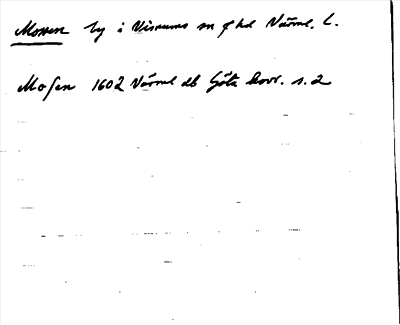 Mossen by i Visnums sn f hd Värml. L.
Mosen 1602 Värml db Göta Hovr. s. 2